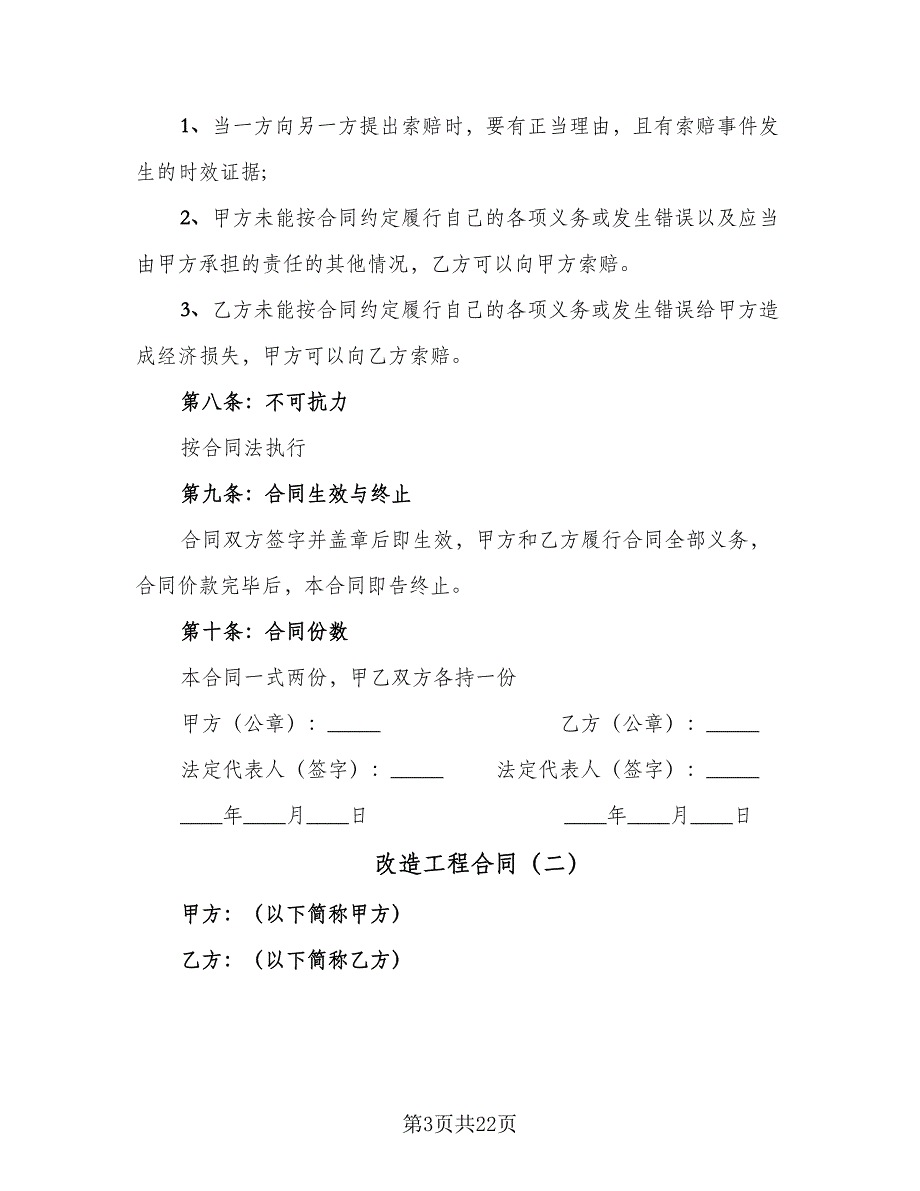 1、当一方向另一方提出索赔时，要有正当理由，且有索赔事件发
生的时效证据;
2、甲方未能按合同约定履行自己的各项义务或发生错误以及应当
由甲方承担的责任的其他情况，乙方可以向甲方索赔。
3、乙方未能按合同约定履行自己的各项义务或发生错误给甲方造
成经济损失，甲方可以向乙方索赔。
第八条：不可抗力
按合同法执行
第九条：合同生效与终止
合同双方签字并盖章后即生效，甲方和乙方履行合同全部义务，
合同价款完毕后，本合同即告终止。
第十条：合同份数
本合同一式两份，甲乙双方各持一份
甲方（公章）：_____ 乙方（公章）：_____
法定代表人（签字）：_____ 法定代表人（签字）：_____
____年____月____日 ____年____月____日
改造工程合同（二）
甲方：（以下简称甲方）
乙方：（以下简称乙方）
第3页共22页